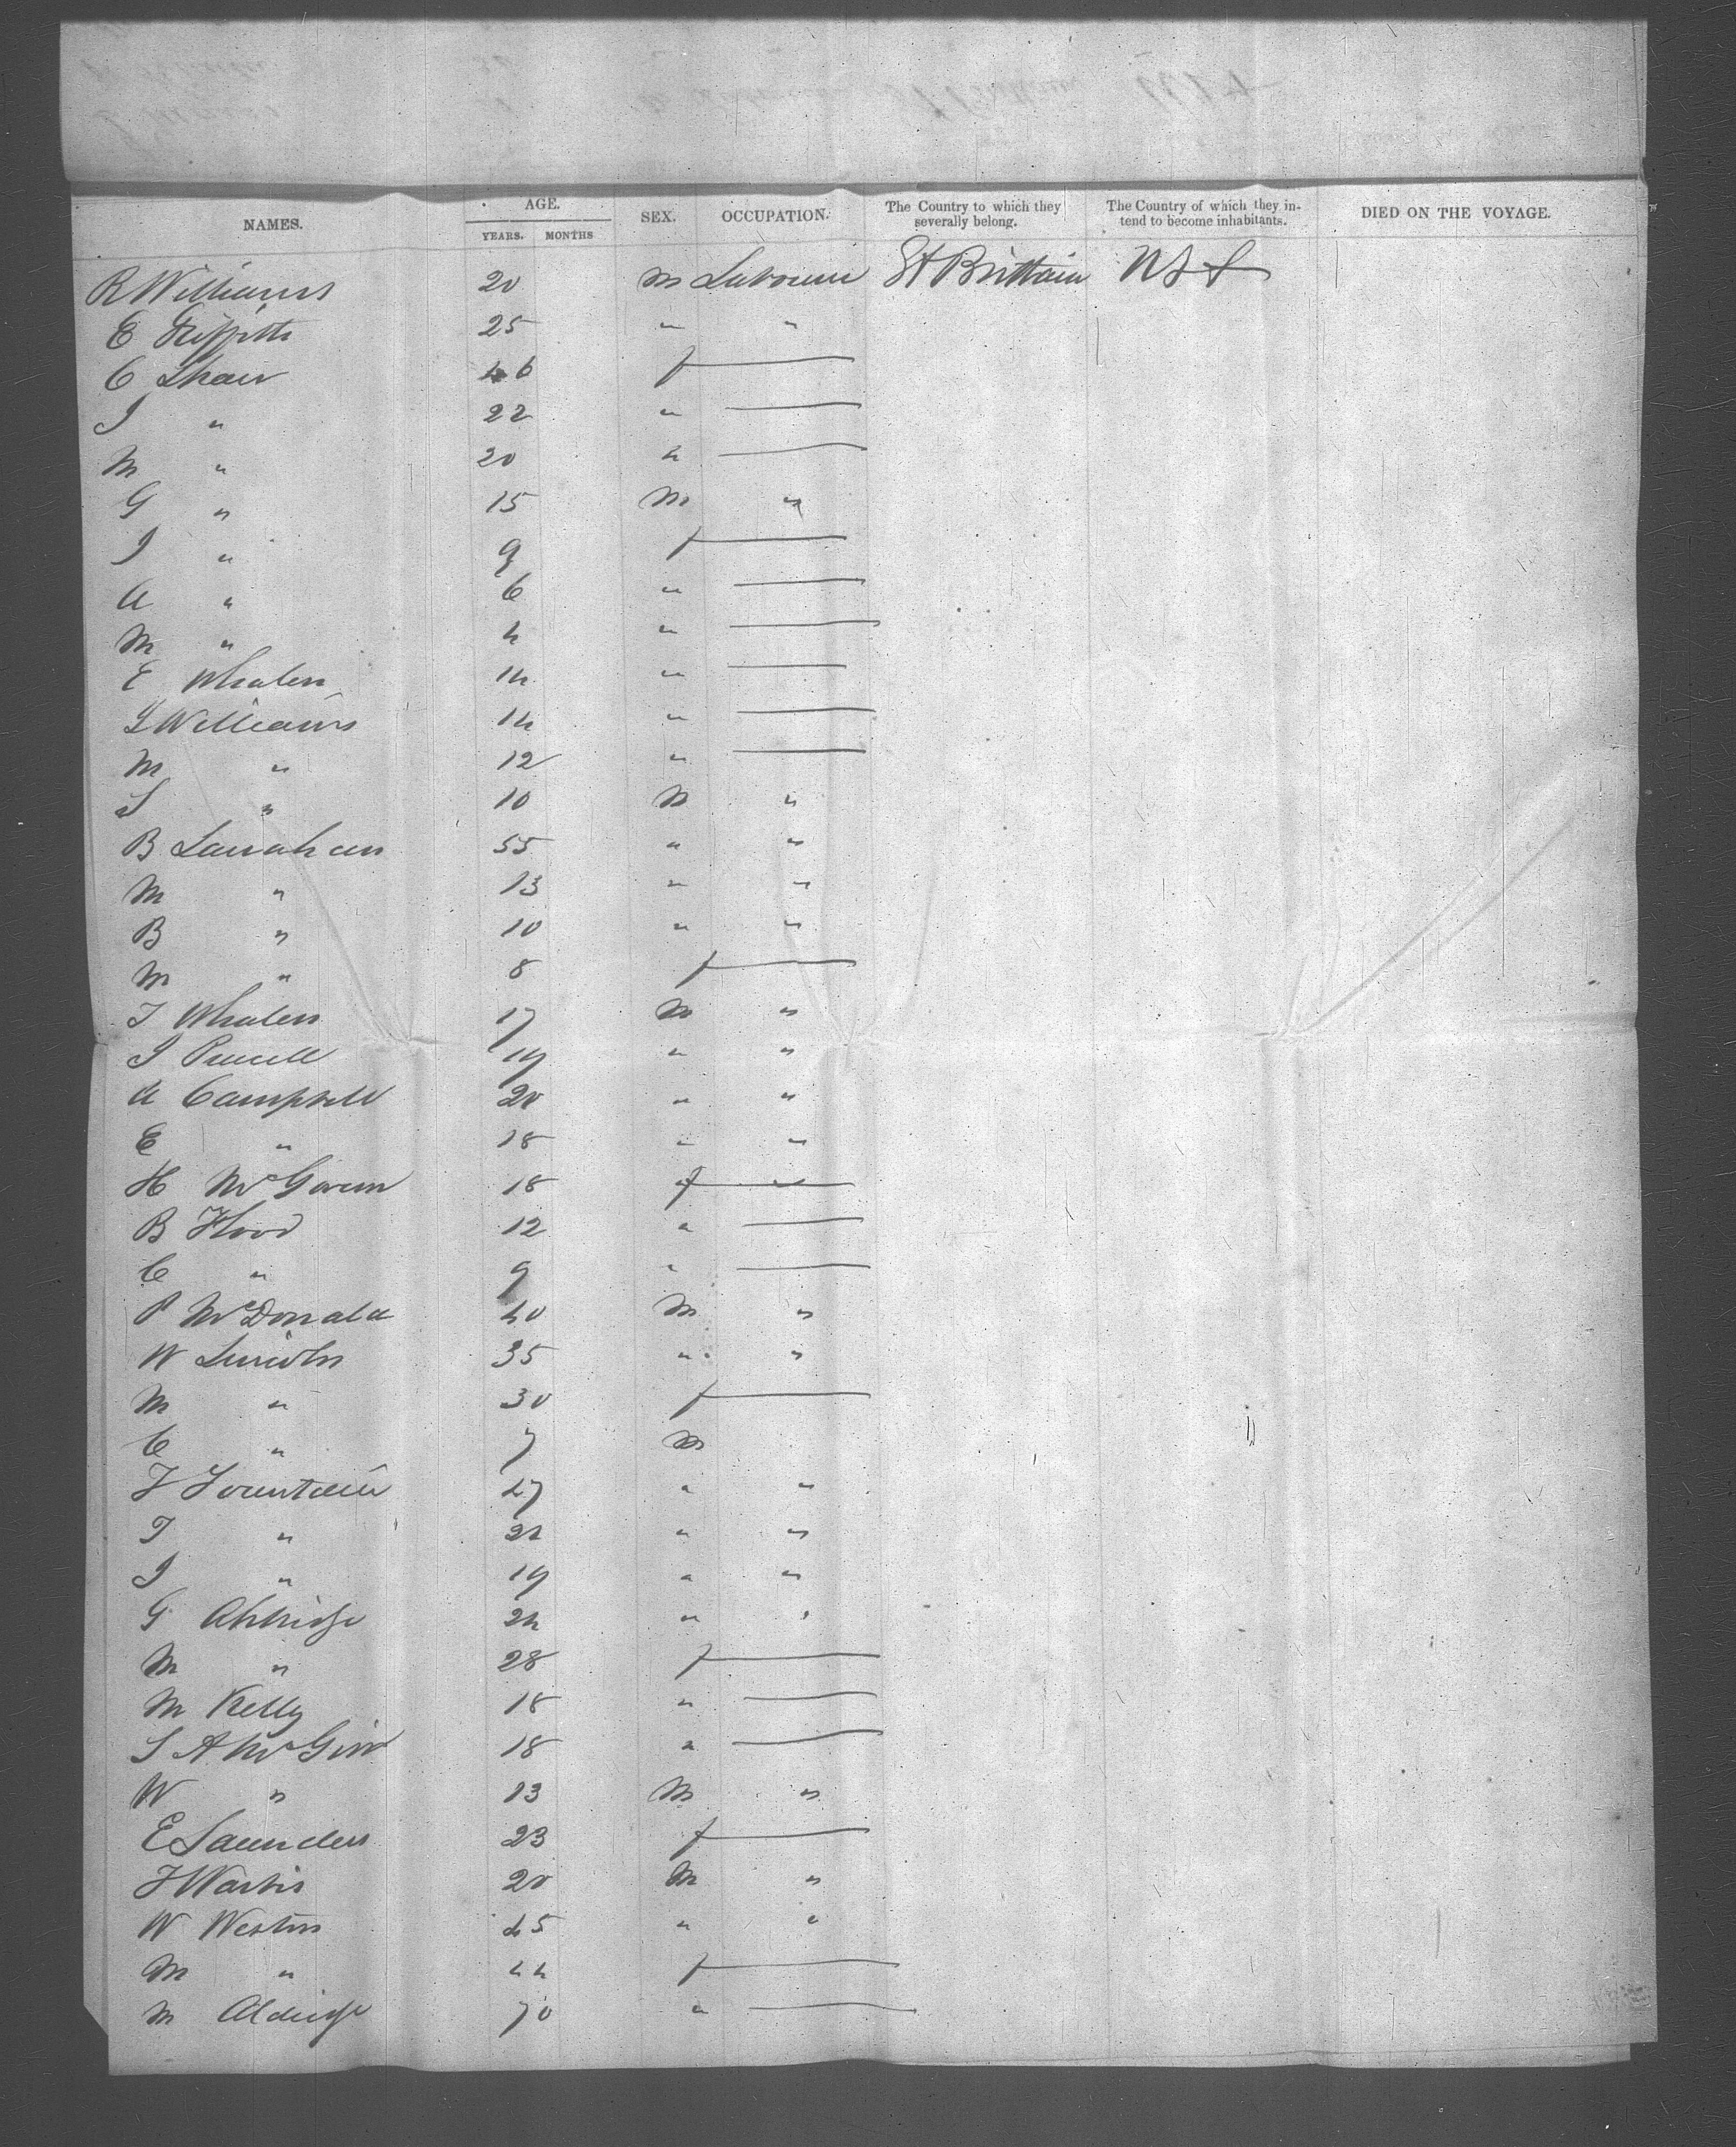 NAMES. AGE. SEX. OCCUPATION. The Country to which they severally belong. The Country of which they intend to become inhabitants. DIED ON THE VOYAGE.
YEARS. MONTHS
R Williams 20 M Labourer Gt Brittain U S
E Griffiths 25 " "
C Shaw 46 f —
J " 22 " —
M " 20 " —
G " 15 M "
J " 9 f —
A " 6 " —
M " 4 " —
E Whalen 14 " —
L Williams 14 " —
M " 12 " —
S " 10 M "
B Lanahan 55 " "
M " 13 " "
B " 10 " "
M " 8 f —
T Whalen 17 M "
J Purcell 19 " "
A Campbell 20 " "
E " 18 " "
H McGovern 18 f —
B Flood 12 " —
C " 9 " —
P McDonald 40 M "
W Lincoln 35 " "
M " 30 f —
C " 7 M
F Fountain 27 " "
T " 21 " "
J " 19 " "
G Aldridge 24 " "
M " 28 f —
M Kelly 18 " —
S A McGinn 18 " —
W " 13 M "
E Saunders 23 f —
J 20 M "
W Weston 45 " "
M " 44 f —
M Aldridge 70 " —